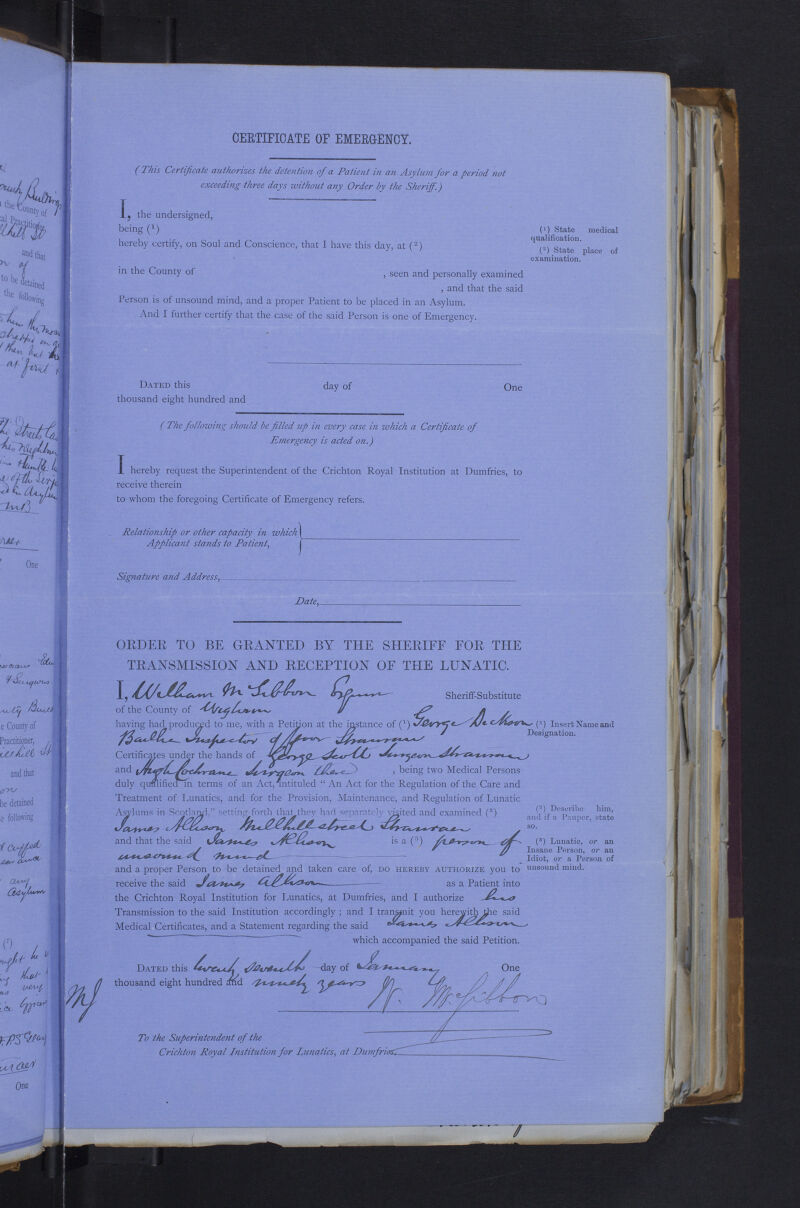 CERTIFICATE OF EMERGENCY.
(This Certificate authorizes the detention of a Patient in an Asylum for a period not
exceeding three days without any Order by the Sheriff.)
I, the undersigned,
being (¹)
hereby certify, on Soul and Conscience, that I have this day, at (²)
in the County of , seen and personally examined
, and that the said
Person is of unsound mind, and a proper Patient to be placed in an Asylum.
And I further certify that the case of the said Person is one of Emergency.
(¹) State medical
qualification.
(²) State place of
examination.
DATED this day of One
thousand eight hundred and
(The following should be filled up in every case in which a Certificate of
Emergency is acted on.)
I hereby request the Superintendent of the Crichton Royal Institution at Dumfries, to
receive therein
to whom the foregoing Certificate of Emergency refers.
Relationship or other capacity in which
Applicant stands to Patient,
Signature and Address,
Date,
ORDER TO BE GRANTED BY THE SHERIFF FOR THE
TRANSMISSION AND RECEPTION OF THE LUNATIC.
I, William McGibbon Esquire Sheriff-Substitute
of the County of Wigtown
having had produced to me, with a Petition at the instance of (¹) George Dickson
Baillie Inspector of Poor Stranraer
Certificates under the hands of George Scott Surgeon Stranraer
and Hugh Cochrane Surgeon there , being two Medical Persons
duly qualified in terms of an Act, intituled "An Act for the Regulation of the Care and
Treatment of Lunatics, and for the Provision, Maintenance, and Regulation of Lunatic
Asylums in Scotland," setting forth that they had separately visited and examined (²)
James Allison Millhill street Stranraer
and that the said James Allison is a (³) person of
unsound mind
and a proper Person to be detained and taken care of, DO HEREBY AUTHORIZE you to
receive the said James Allison as a Patient into
the Crichton Royal Institution for Lunatics, at Dumfries, and I authorize his
Transmission to the said Institution accordingly; and I transmit you herewith the said
Medical Certificates, and a Statement regarding the said James Allison
which accompanied the said Petition.
(¹) Insert Name and
Designation.
(²) Describe him,
and if a Pauper, state
so.
(³) Lunatic, or an
Insane Person, or an
Idiot, or a Person of
unsound mind.
DATED this twenty seventh day of January One
thousand eight hundred and ninety years
W. McGibbon
To the Superintendent of the
Crichton Royal Institution for Lunatics, at Dumfries.